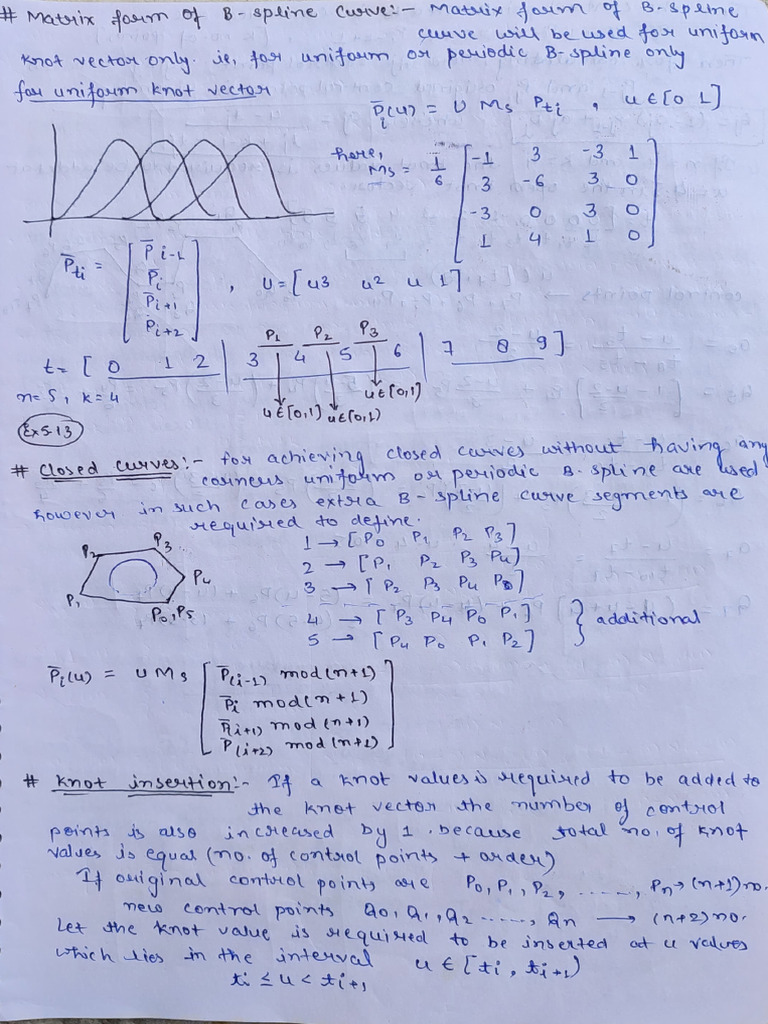 # Matrix form of B-spline Curve:- Matrix form of B-spline
curve will be used for uniform
knot vector only. ie, for uniform or periodic B-spline only
for uniform knot vector
P̄i(u) = U Ms Pti , u ∈ [0 1]
here,
Ms = 1/6 [ -1 3 -3 1
3 -6 3 0
-3 0 3 0
1 4 1 0 ]
P̄ti = [ P̄i-1
P̄i
P̄i+1
P̄i+2 ] , U = [u3 u2 u 1]
P1 P2 P3
t = [ 0 1 2 | 3 4 5 6 | 7 8 9 ]
n=5, k=4
u∈[0,1) u∈[0,1) u∈[0,1)
Ex 5.13
# Closed curves:- for achieving closed curves without having any
corners uniform or periodic B-spline are used
however in such cases extra B-spline curve segments are
required to define.
1 → [P0 P1 P2 P3]
2 → [P1 P2 P3 P4)
3 → [P2 P3 P4 P0]
4 → [P3 P4 P0 P1]
5 → [P4 P0 P1 P2]
} additional
P2 P3
P4
P1 P0,P5
P̄i(u) = U Ms [ P̄(i-1) mod(n+1)
P̄i mod(n+1)
P̄(i+1) mod(n+1)
P(i+2) mod(n+1) ]
# Knot insertion:- If a knot values is required to be added to
the knot vector the number of control
points is also increased by 1. because total no. of knot
values is equal (no. of control points + order)
If original control points are P0, P1, P2, ......, Pn → (n+1) no.
new control points Q0, Q1, Q2 ......, Qn → (n+2) no.
Let the knot value is required to be inserted at u values
which lies in the interval u ∈ [ti, ti+1)
ti ≤ u < ti+1